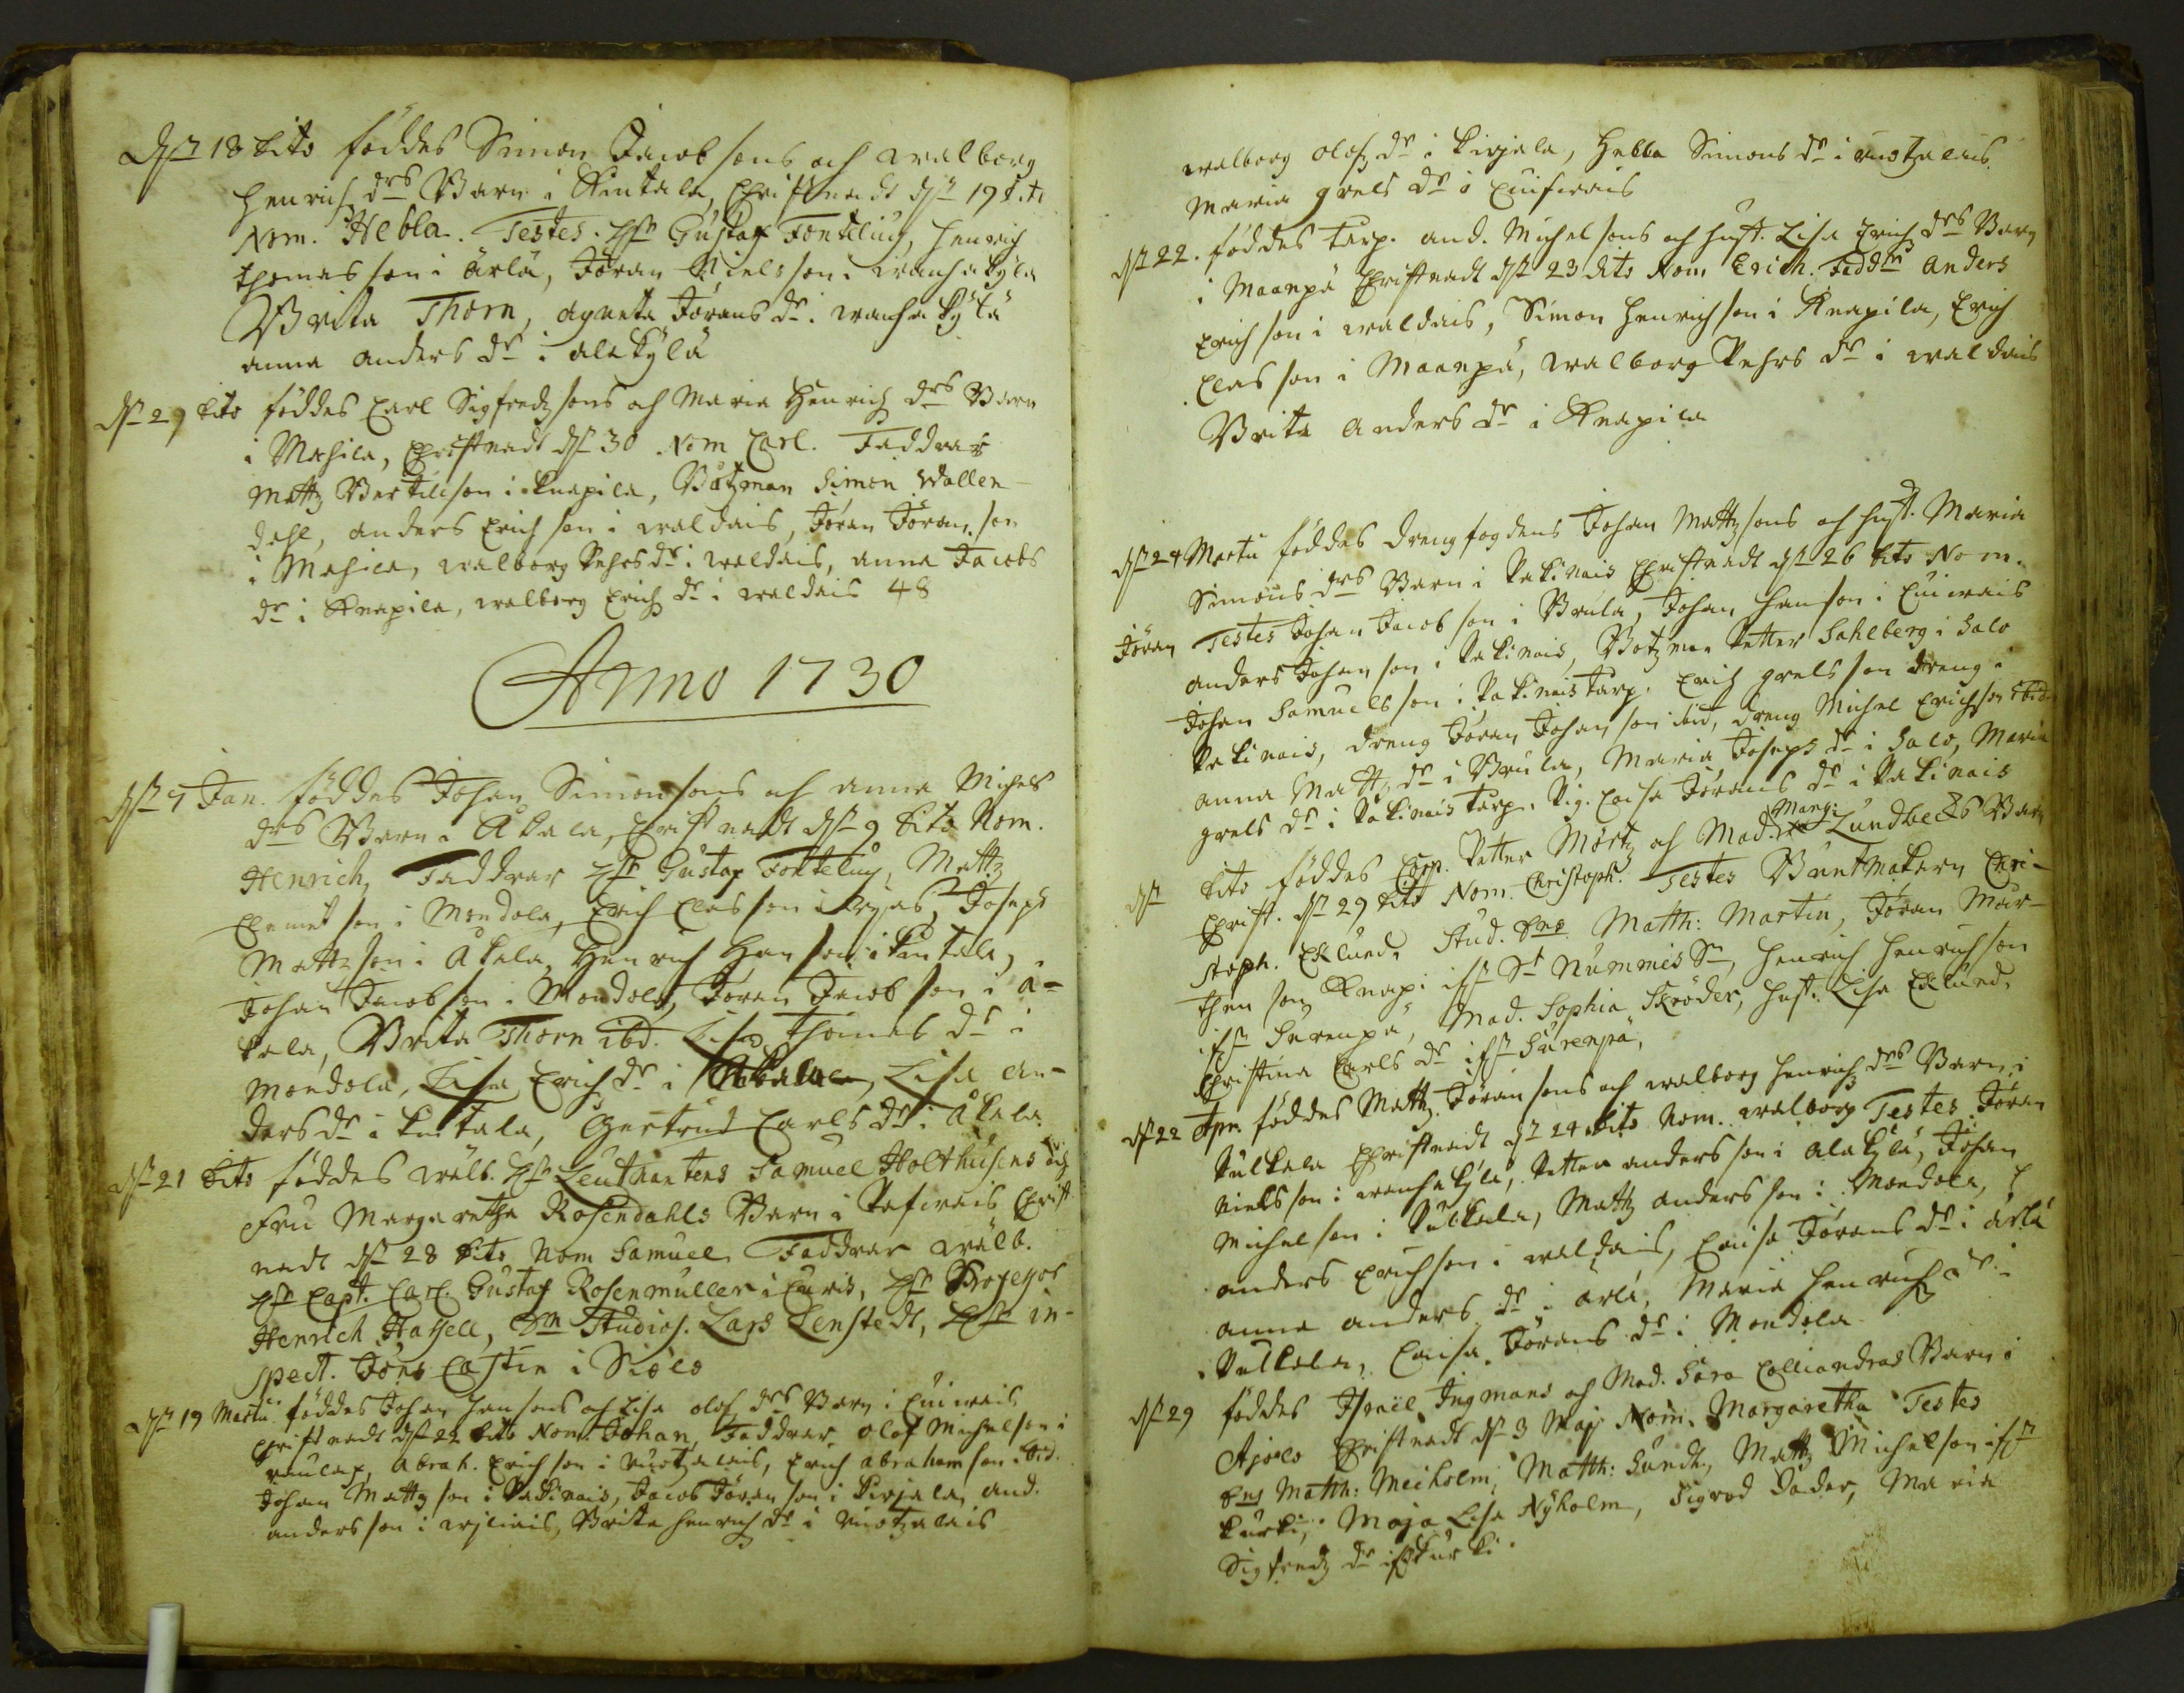 dhn 18 dito föddes Simon Jacobsons och walborg
Henrichs drs Barn i Kintala, Christnadt dhn 19 dito
Nom. Hebla. Testes. Hr Gustaf Fontelius, Henrich
Thomesson i Ärlä, Jöran Nielsson i wanhakylä
Brita Thorn, agneta Jörans dr i wanhakylä
anna anders dr i alakylä
dhn 29 dito föddes Carl Sigfredzsons och Maria Henrichs drs Barn
i Mahila, Christnadt dhn 30. Nom Carl. Faddrar
Matz Bertilsson i Knapila, Båtzman Simon Wallen-
dahl, anders Erichson i waldais, Jöran Jöranson
i Mahila, walborg Pehrs dr i waldais, anna Jacobs
dr i Knapila, walborg Erichs dr i waldais 48
Anno 1730
dhn 7 Jan. föddes Johan Simonsons och anna Michels
drs Barn i Åkala, Christnadt dhn 9 dito Nom.
Henrich, Faddrar Hr Gustaf Fontelius, Matz
Clemetson i Mondola, Erich Classon i, Joseph
Matzson i Åkala, Henrich Hansson i Kintala,
Johan Jacobson i Mondola, Jöran Jacobson i Å-
kala, Brita Thorn ibd. Lisa Thomas dr i
Mondola, Lisa Erichs dr i Åkala, Lisa an-
ders dr i Kintala, Gertrud Carls dr i Åkala
dhn 21 dito föddes wälb. Hr Leutnantens Samuel Holthusens och
Fru Margaretha Rosendahls Barn i Christ-
nadt dhn 28 dito Nom Samuel. Faddrar wälb.
Hr Capt. Carl Gustaf Rosenmüller i Curis, Hr Professor
Henrich Hassell, Dn Studios. Lars Lenstedt, Hr in-
spect. Jöns Castin i Siölö
dhn 19 Martii föddes Johan Hansons och Lisa Olofs drs Barn i
Christnadt dhn 22 dito Nom. Johan, Faddrar Olof Michelson i
Abrah. Erichson i, Erich Abrahamson ibid.
Johan Matzson i Pakinais, Jacob Jöranson i Kirjala, And.
anderson i, Brita Henrichs dr i
walborg Olofs dr i Kirjala, Hebba Simons dr i
Maria grels dr i
dhn 22. föddes Torp. And. Michelsons och hust. Lisa Erichs drs Barn
i Maanpä Christnadt dhn 23 dito Nom Erich. Faddrn Anders
Erichson i waldais, Simon Henrichson i Knapila, Erich
Classon i Maanpä, walborg Pehrs dr i waldais
Brita Anders dr i Knapila
dhn 24 Martii föddes drengfogdens Johan Matzsons och hust. Maria
Simons drs Barn i Pakinais Christnadt dhn 26 dito Nom.
Jöran Testes Johan Jacobson i Brula, Johan Hanson i
anders Johanson i Pakinais, Botzman Petter Sahlberg i Salo
Johan Samuelsson i Pakinais Torp. Erich grelsson dreng i
Pakinais, dreng Jöran Johanson ibid, dreng Michel Erichson ibid.
anna Matz dr i Brula, Maria Josephs dr i Salo, Maria
grels dr i Pakinais Torp. Pig. Caisa Jörans dr i Pakinais
dhn dito föddes Corp. Petter Mörtz och Mad. Marg: Lundbecks Barn
Christ. dhn 29 dito Nom. Christoph. Testes Buntmakern Chri-
stoph. Eklund, Stud. Dns Matth: Martin, Jöran Mar-
thenson Knapi ifrn St Nummis Sn, Henrich Henrichson
ifrn Särenpä, Mad. Sophia Skröder, hust. Lisa Eklund,
Christina Carls dr ifrn Särenpä,
dhn 22 Apr. föddes Matz Jöransons och walborg Henrichs drs Barn i
Pulkala Christnadt dhn 24 dito Nom. walborg Testes Jöran
Nielsson i wanhakylä, Petter andersson i alakylä, Johan
Michelson i Pulkala, Matz andersson i Mondola,
anders Erichson i waldais, Caisa Jörans dr i ärlä
anna anders dr i ärlä, Maria Henrichs dr i
Pulkala, Caisa Jörans dr i Mondola
dhn 29 föddes Israel Ingmans och Mad. Sara Calliandras Barn i
Ajolo Christnadt dhn 3 Maj Nom. Margaretha Testes
Dns Matth: Meiholm, Matth: Sundt, Matz Michelson ifrn
Kurki, Maja Lisa Nyholm, Sigrod Dader, Maria
Sigfredz dr ifrn Kurki.